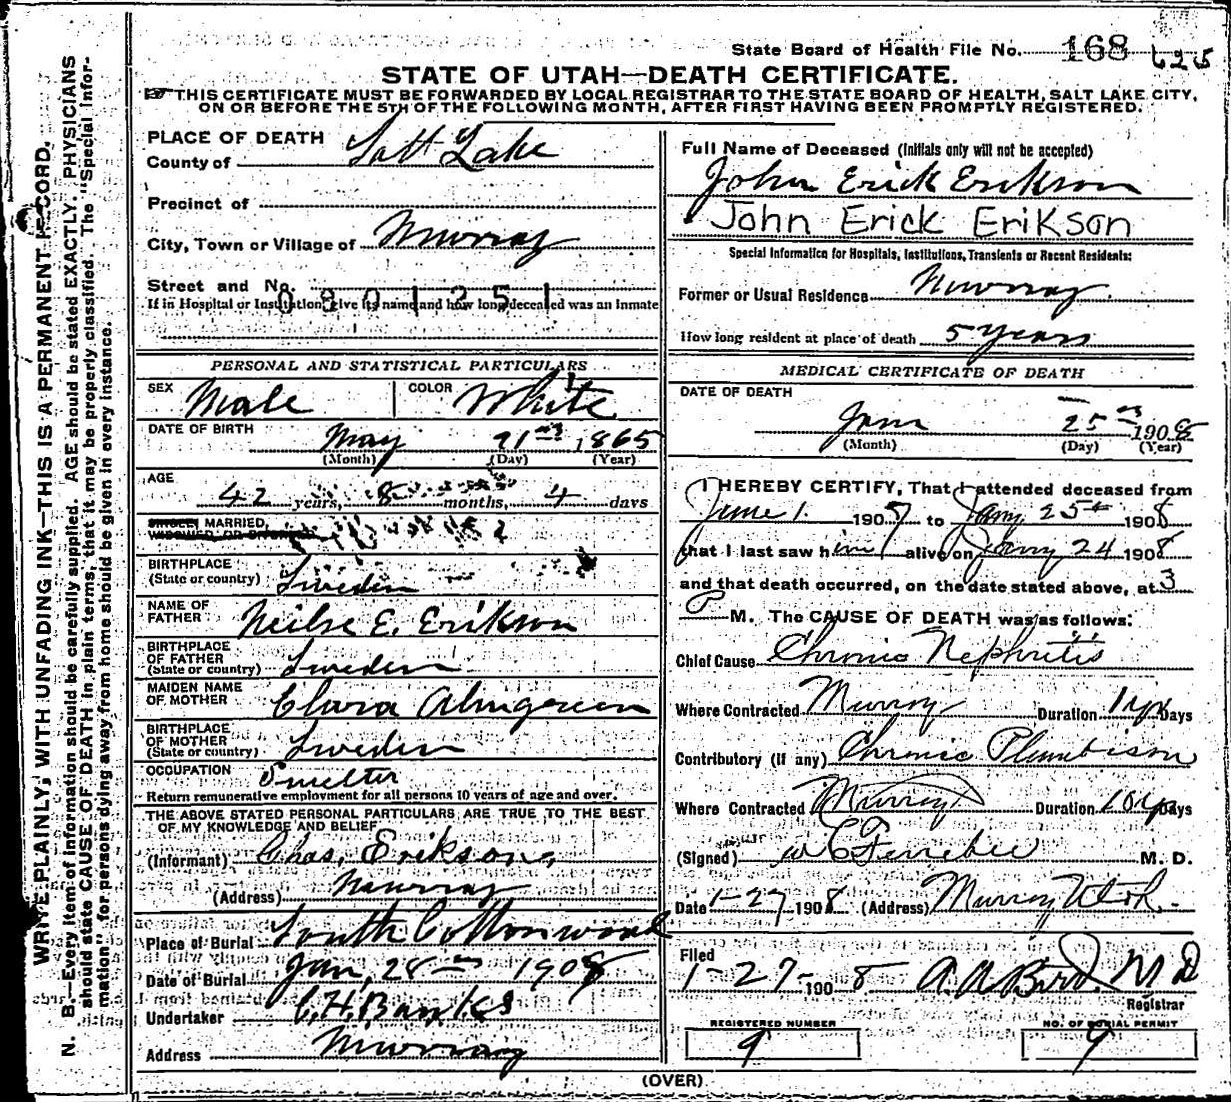 State Board of Health File No. 168 625
STATE OF UTAH—DEATH CERTIFICATE.
THIS CERTIFICATE MUST BE FORWARDED BY LOCAL REGISTRAR TO THE STATE BOARD OF HEALTH, SALT LAKE CITY,
ON OR BEFORE THE 5TH OF THE FOLLOWING MONTH, AFTER FIRST HAVING BEEN PROMPTLY REGISTERED.
WRITE PLAINLY, WITH UNFADING INK—THIS IS A PERMANENT RECORD.
N. B.—Every item of information should be carefully supplied. AGE should be stated EXACTLY. PHYSICIANS
should state CAUSE OF DEATH in plain terms, that it may be properly classified. The "Special Infor-
mation" for persons dying away from home should be given in every instance.
PLACE OF DEATH
County of Salt Lake
Precinct of
City, Town or Village of Murray
Street and No.
0801251
If in Hospital or Institution, give its name and how long deceased was an inmate
PERSONAL AND STATISTICAL PARTICULARS
SEX Male COLOR White
DATE OF BIRTH May 21 1865
(Month) (Day) (Year)
AGE
42 years, 8 months, 4 days
SINGLE, MARRIED,
WIDOWED, OR DIVORCED
BIRTHPLACE
(State or country) Sweden
NAME OF
FATHER Neilse E. Erikson
BIRTHPLACE
OF FATHER
(State or country) Sweden
MAIDEN NAME
OF MOTHER Clara Almgreen
BIRTHPLACE
OF MOTHER
(State or country) Sweden
OCCUPATION Smelter
Return remunerative employment for all persons 10 years of age and over.
THE ABOVE STATED PERSONAL PARTICULARS ARE TRUE TO THE BEST
OF MY KNOWLEDGE AND BELIEF
(Informant) Chas. Erikson
(Address) Murray
Place of Burial South Cottonwood
Date of Burial Jan, 28 1908
Undertaker
Address Murray
Full Name of Deceased (Initials only will not be accepted)
John Erick Erikson
John Erick Erikson
Special Information for Hospitals, Institutions, Transients or Recent Residents:
Former or Usual Residence Murray.
How long resident at place of death 5 years
MEDICAL CERTIFICATE OF DEATH
DATE OF DEATH
Jan 25 1908
(Month) (Day) (Year)
I HEREBY CERTIFY, That I attended deceased from
June 1. 1907 to Jany 25th 1908
that I last saw him alive on Jany 24 1908
and that death occurred, on the date stated above, at 3
P M. The CAUSE OF DEATH was as follows:
Chief Cause Chronic Nephritis
Where Contracted Murray Duration 1 yr Days
Contributory (if any) Chronic Plumbism
Where Contracted Murray Duration Days
(Signed) W C Ferrebee M. D.
Date 1-27 1908 (Address) Murray Utah.
Filed
1-27-1908 A. A. Bird. M D
Registrar
REGISTERED NUMBER
9
NO. OF BURIAL PERMIT
9
(OVER)